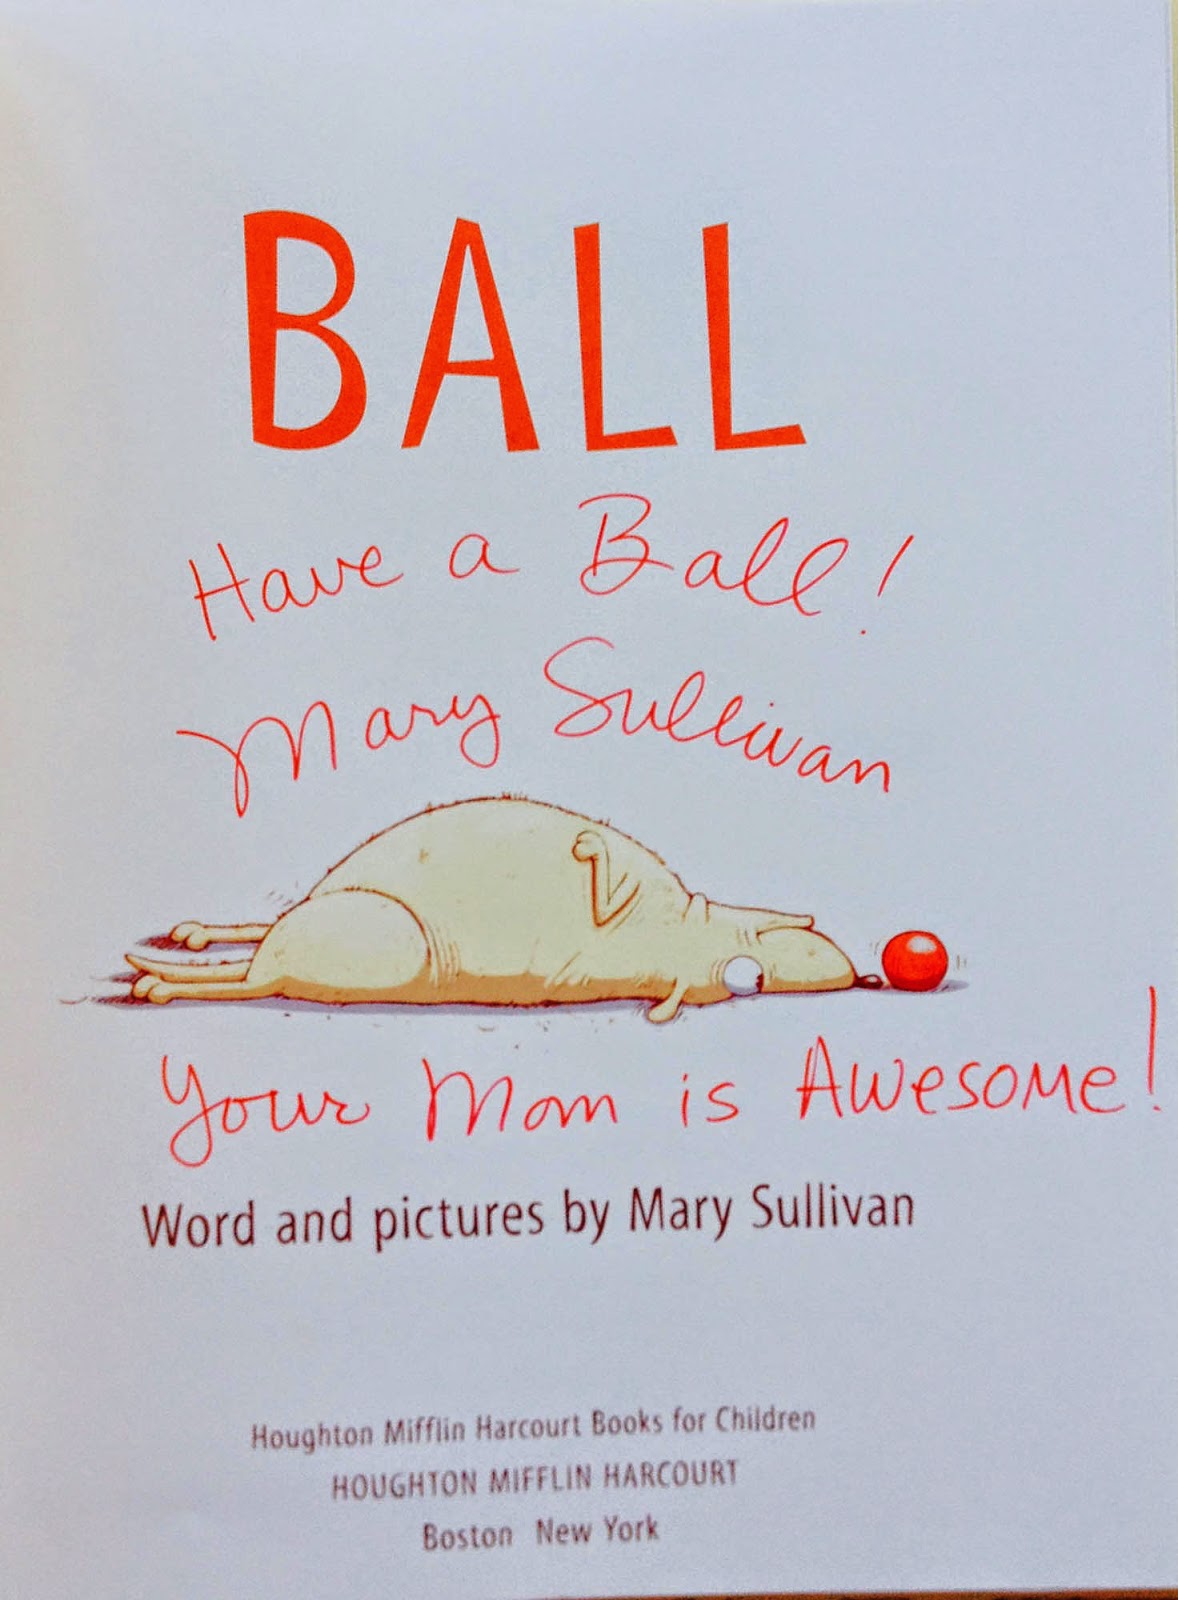 BALL
Have a Ball!
Mary Sullivan
Your Mom is Awesome!
Word and pictures by Mary Sullivan
Houghton Mifflin Harcourt Books for Children
HOUGHTON MIFFLIN HARCOURT
Boston New York